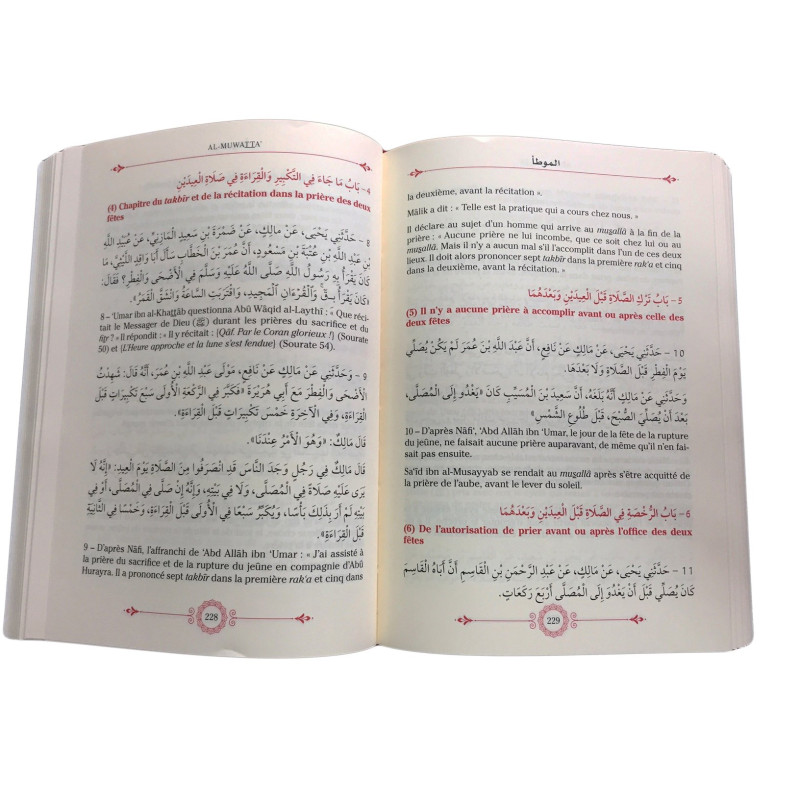 AL-MUWAṬṬA’
4 – بَابُ مَا جَاءَ فِي التَّكْبِيرِ وَالْقِرَاءَةِ فِي صَلَاةِ الْعِيدَيْنِ
(4) Chapitre du takbīr et de la récitation dans la prière des deux
fêtes
8 – حَدَّثَنِي يَحْيَى، عَنْ مَالِكٍ، عَنْ ضَمْرَةَ بْنِ سَعِيدٍ الْمَازِنِيِّ، عَنْ عُبَيْدِ اللَّهِ
بْنِ عَبْدِ اللَّهِ بْنِ عُتْبَةَ بْنِ مَسْعُودٍ، أَنَّ عُمَرَ بْنَ الْخَطَّابِ سَأَلَ أَبَا وَاقِدٍ اللَّيْثِيَّ، مَا
كَانَ يَقْرَأُ بِهِ رَسُولُ اللَّهِ صَلَّى اللَّهُ عَلَيْهِ وَسَلَّمَ فِي الْأَضْحَى وَالْفِطْرِ؟ فَقَالَ:
«كَانَ يَقْرَأُ بِـقٓ وَالْقُرْءَانِ الْمَجِيدِ، وَاقْتَرَبَتِ السَّاعَةُ وَانْشَقَّ الْقَمَرُ».
8 – ‘Umar ibn al-Khaṭṭāb questionna Abū Wāqid al-Laythī : « Que réci-
tait le Messager de Dieu (ﷺ) durant les prières du sacrifice et du
fiṭr ? » Il répondit : « Il y récitait : {Qāf. Par le Coran glorieux !} (Sourate
50) et {L’Heure approche et la lune s’est fendue} (Sourate 54).
9 – وَحَدَّثَنِي عَنْ مَالِكٍ عَنْ نَافِعٍ، مَوْلَى عَبْدِ اللَّهِ بْنِ عُمَرَ، أَنَّهُ قَالَ: شَهِدْتُ
الْأَضْحَى وَالْفِطْرَ مَعَ أَبِي هُرَيْرَةَ «فَكَبَّرَ فِي الرَّكْعَةِ الْأُولَى سَبْعَ تَكْبِيرَاتٍ قَبْلَ
الْقِرَاءَةِ، وَفِي الْآخِرَةِ خَمْسَ تَكْبِيرَاتٍ قَبْلَ الْقِرَاءَةِ».
قَالَ مَالِكٌ: «وَهُوَ الْأَمْرُ عِنْدَنَا».
قَالَ مَالِكٌ فِي رَجُلٍ وَجَدَ النَّاسَ قَدِ انْصَرَفُوا مِنَ الصَّلَاةِ يَوْمَ الْعِيدِ: «إِنَّهُ لَا
يَرَى عَلَيْهِ صَلَاةً فِي الْمُصَلَّى، وَلَا فِي بَيْتِهِ، وَإِنَّهُ إِنْ صَلَّى فِي الْمُصَلَّى، أَوْ فِي
بَيْتِهِ لَمْ أَرَ بِذَلِكَ بَأْسًا، وَيُكَبِّرُ سَبْعًا فِي الْأُولَى قَبْلَ الْقِرَاءَةِ، وَخَمْسًا فِي الثَّانِيَةِ
قَبْلَ الْقِرَاءَةِ».
9 – D’après Nāfi, l’affranchi de ‘Abd Allāh ibn ‘Umar : « J’ai assisté à
la prière du sacrifice et de la rupture du jeûne en compagnie d’Abū
Hurayra. Il a prononcé sept takbīr dans la première rak‘a et cinq dans
228
الموطأ
la deuxième, avant la récitation ».
Mālik a dit : « Telle est la pratique qui a cours chez nous. »
Il déclare au sujet d’un homme qui arrive au muṣallā à la fin de la
prière : « Aucune prière ne lui incombe, que ce soit chez lui ou au
muṣallā. Mais il n’y a aucun mal s’il l’accomplit dans l’un de ces deux
lieux. Il doit alors prononcer sept takbīr dans la première rak‘a et cinq
dans la deuxième, avant la récitation. »
5 – بَابُ تَرْكِ الصَّلَاةِ قَبْلَ الْعِيدَيْنِ وَبَعْدَهُمَا
(5) Il n’y a aucune prière à accomplir avant ou après celle des
deux fêtes
10 – حَدَّثَنِي يَحْيَى، عَنْ مَالِكٍ عَنْ نَافِعٍ، أَنَّ عَبْدَ اللَّهِ بْنَ عُمَرَ لَمْ يَكُنْ يُصَلِّي
يَوْمَ الْفِطْرِ قَبْلَ الصَّلَاةِ وَلَا بَعْدَهَا.
وَحَدَّثَنِي عَنْ مَالِكٍ أَنَّهُ بَلَغَهُ، أَنَّ سَعِيدَ بْنَ الْمُسَيِّبِ كَانَ «يَغْدُو إِلَى الْمُصَلَّى،
بَعْدَ أَنْ يُصَلِّيَ الصُّبْحَ، قَبْلَ طُلُوعِ الشَّمْسِ»
10 – D’après Nāfi‘, ‘Abd Allāh ibn ‘Umar, le jour de la fête de la rupture
du jeûne, ne faisait aucune prière auparavant, de même qu’il n’en
faisait pas ensuite.
Sa‘īd ibn al-Musayyab se rendait au muṣallā après s’être acquitté de
la prière de l’aube, avant le lever du soleil.
6 – بَابُ الرُّخْصَةِ فِي الصَّلَاةِ قَبْلَ الْعِيدَيْنِ وَبَعْدَهُمَا
(6) De l’autorisation de prier avant ou après l’office des deux
fêtes
11 – حَدَّثَنِي يَحْيَى، عَنْ مَالِكٍ، عَنْ عَبْدِ الرَّحْمَنِ بْنِ الْقَاسِمِ أَنَّ أَبَاهُ الْقَاسِمَ
كَانَ يُصَلِّي قَبْلَ أَنْ يَغْدُوَ إِلَى الْمُصَلَّى أَرْبَعَ رَكَعَاتٍ.
229